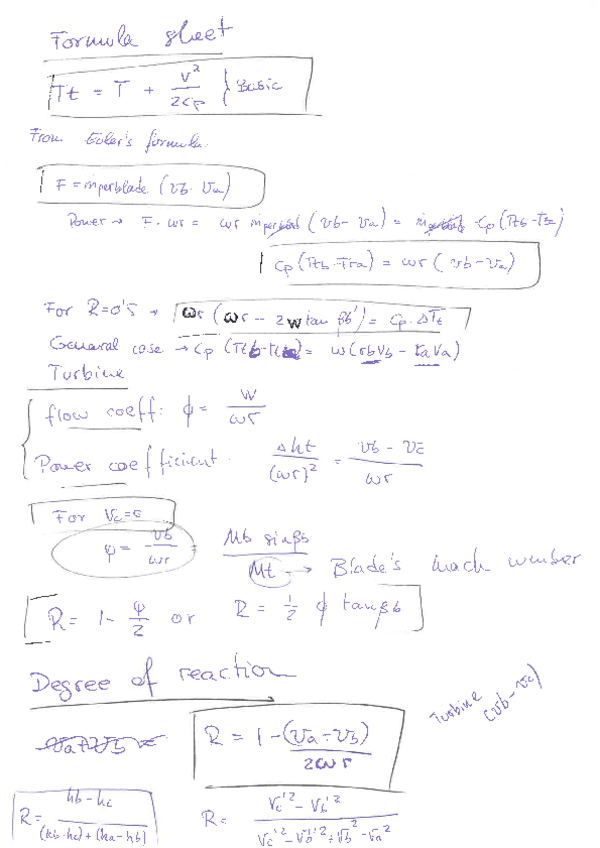 Formula sheet
Tt = T + v²/2cp } Basic
From Euler's formula.
F = ṁperblade (vb - va)
Power → F · ωr = ωr ṁperblade (vb - va) = ṁperblade Cp (Ttb - Tta)
Cp (Ttb - Tta) = ωr (vb - va)
For R=0'5 → ωr (ωr - 2w tan βb') = Cp · ΔTt
General case → Cp (Ttb - Tta) = ω(rb vb - ra va)
Turbine
flow coeff: ϕ = w/ωr
Power coefficient · Δht/(ωr)² = vb - vc/ωr
For Vc=0
ψ = vb/ωr = Mb sinβb/Mt → Blade's mach number
R = 1 - ψ/2 or R = 1/2 ϕ tanβb
Degree of reaction
va + vb =
R = 1 - (va + vb)/2ωr
Turbine (vb - vc)
R = hb - hc/(hb - hc) + (ha - hb)
R = vc'² - vb'²/vc'² - vb'² + vb² - va²